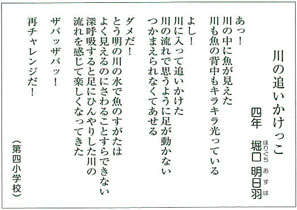 川の追いかけっこ
四年　堀口　明日羽
ほりぐち　あすは
あっ！
川の中に魚が見えた
川も魚の背中もキラキラ光っている
よし！
川に入って追いかけた
川の流れで思うように足が動かない
つかまえられなくてあせる
ダメだ！
とう明の川の水で魚のすがたは
よく見えるのにさわることすらできない
深呼吸すると足にひんやりした川の
流れを感じて楽しくなってきた
ザバッザバッ！
再チャレンジだ！
（第四小学校）